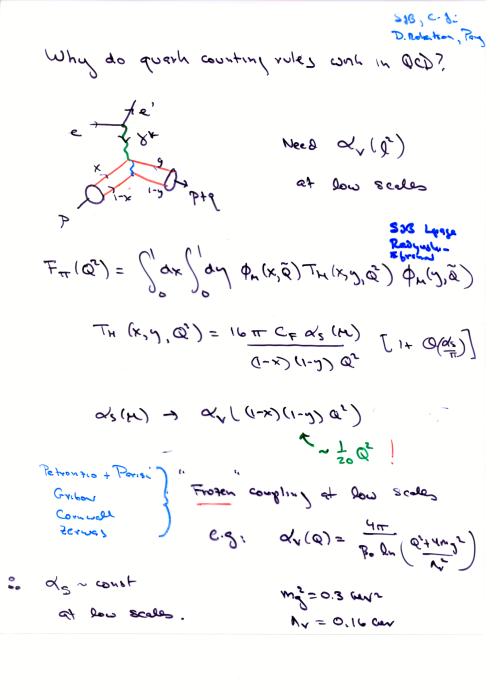 SJB, C.-J.
D. Robertson, Pang
Why do quark counting rules work in QCD?
e e'
γ*
x y
1-x 1-y
p p+q
Need α_V(l²)
at low scales
SJB Lepage
Radyushkin
Efremov
F_π(Q²) = ∫₀¹ dx ∫₀¹ dy φ_M(x,Q̃) T_H(x,y,Q²) φ_M(y,Q̃)
T_H(x,y,Q²) = 16π C_F α_s(μ) / (1-x)(1-y) Q² [1 + O(α_s/π)]
α_s(μ) → α_V((1-x)(1-y) Q²)
~ 1/20 Q² !
Petronzio + Parisi
Gribov
Cornwall
Zerwas
"Frozen" coupling at low scales
e.g: α_V(Q) = 4π / β₀ ln (Q²+4m_g² / Λ_V²)
∴ α_s ~ const
at low scales.
m_g² = 0.3 GeV²
Λ_V = 0.16 GeV